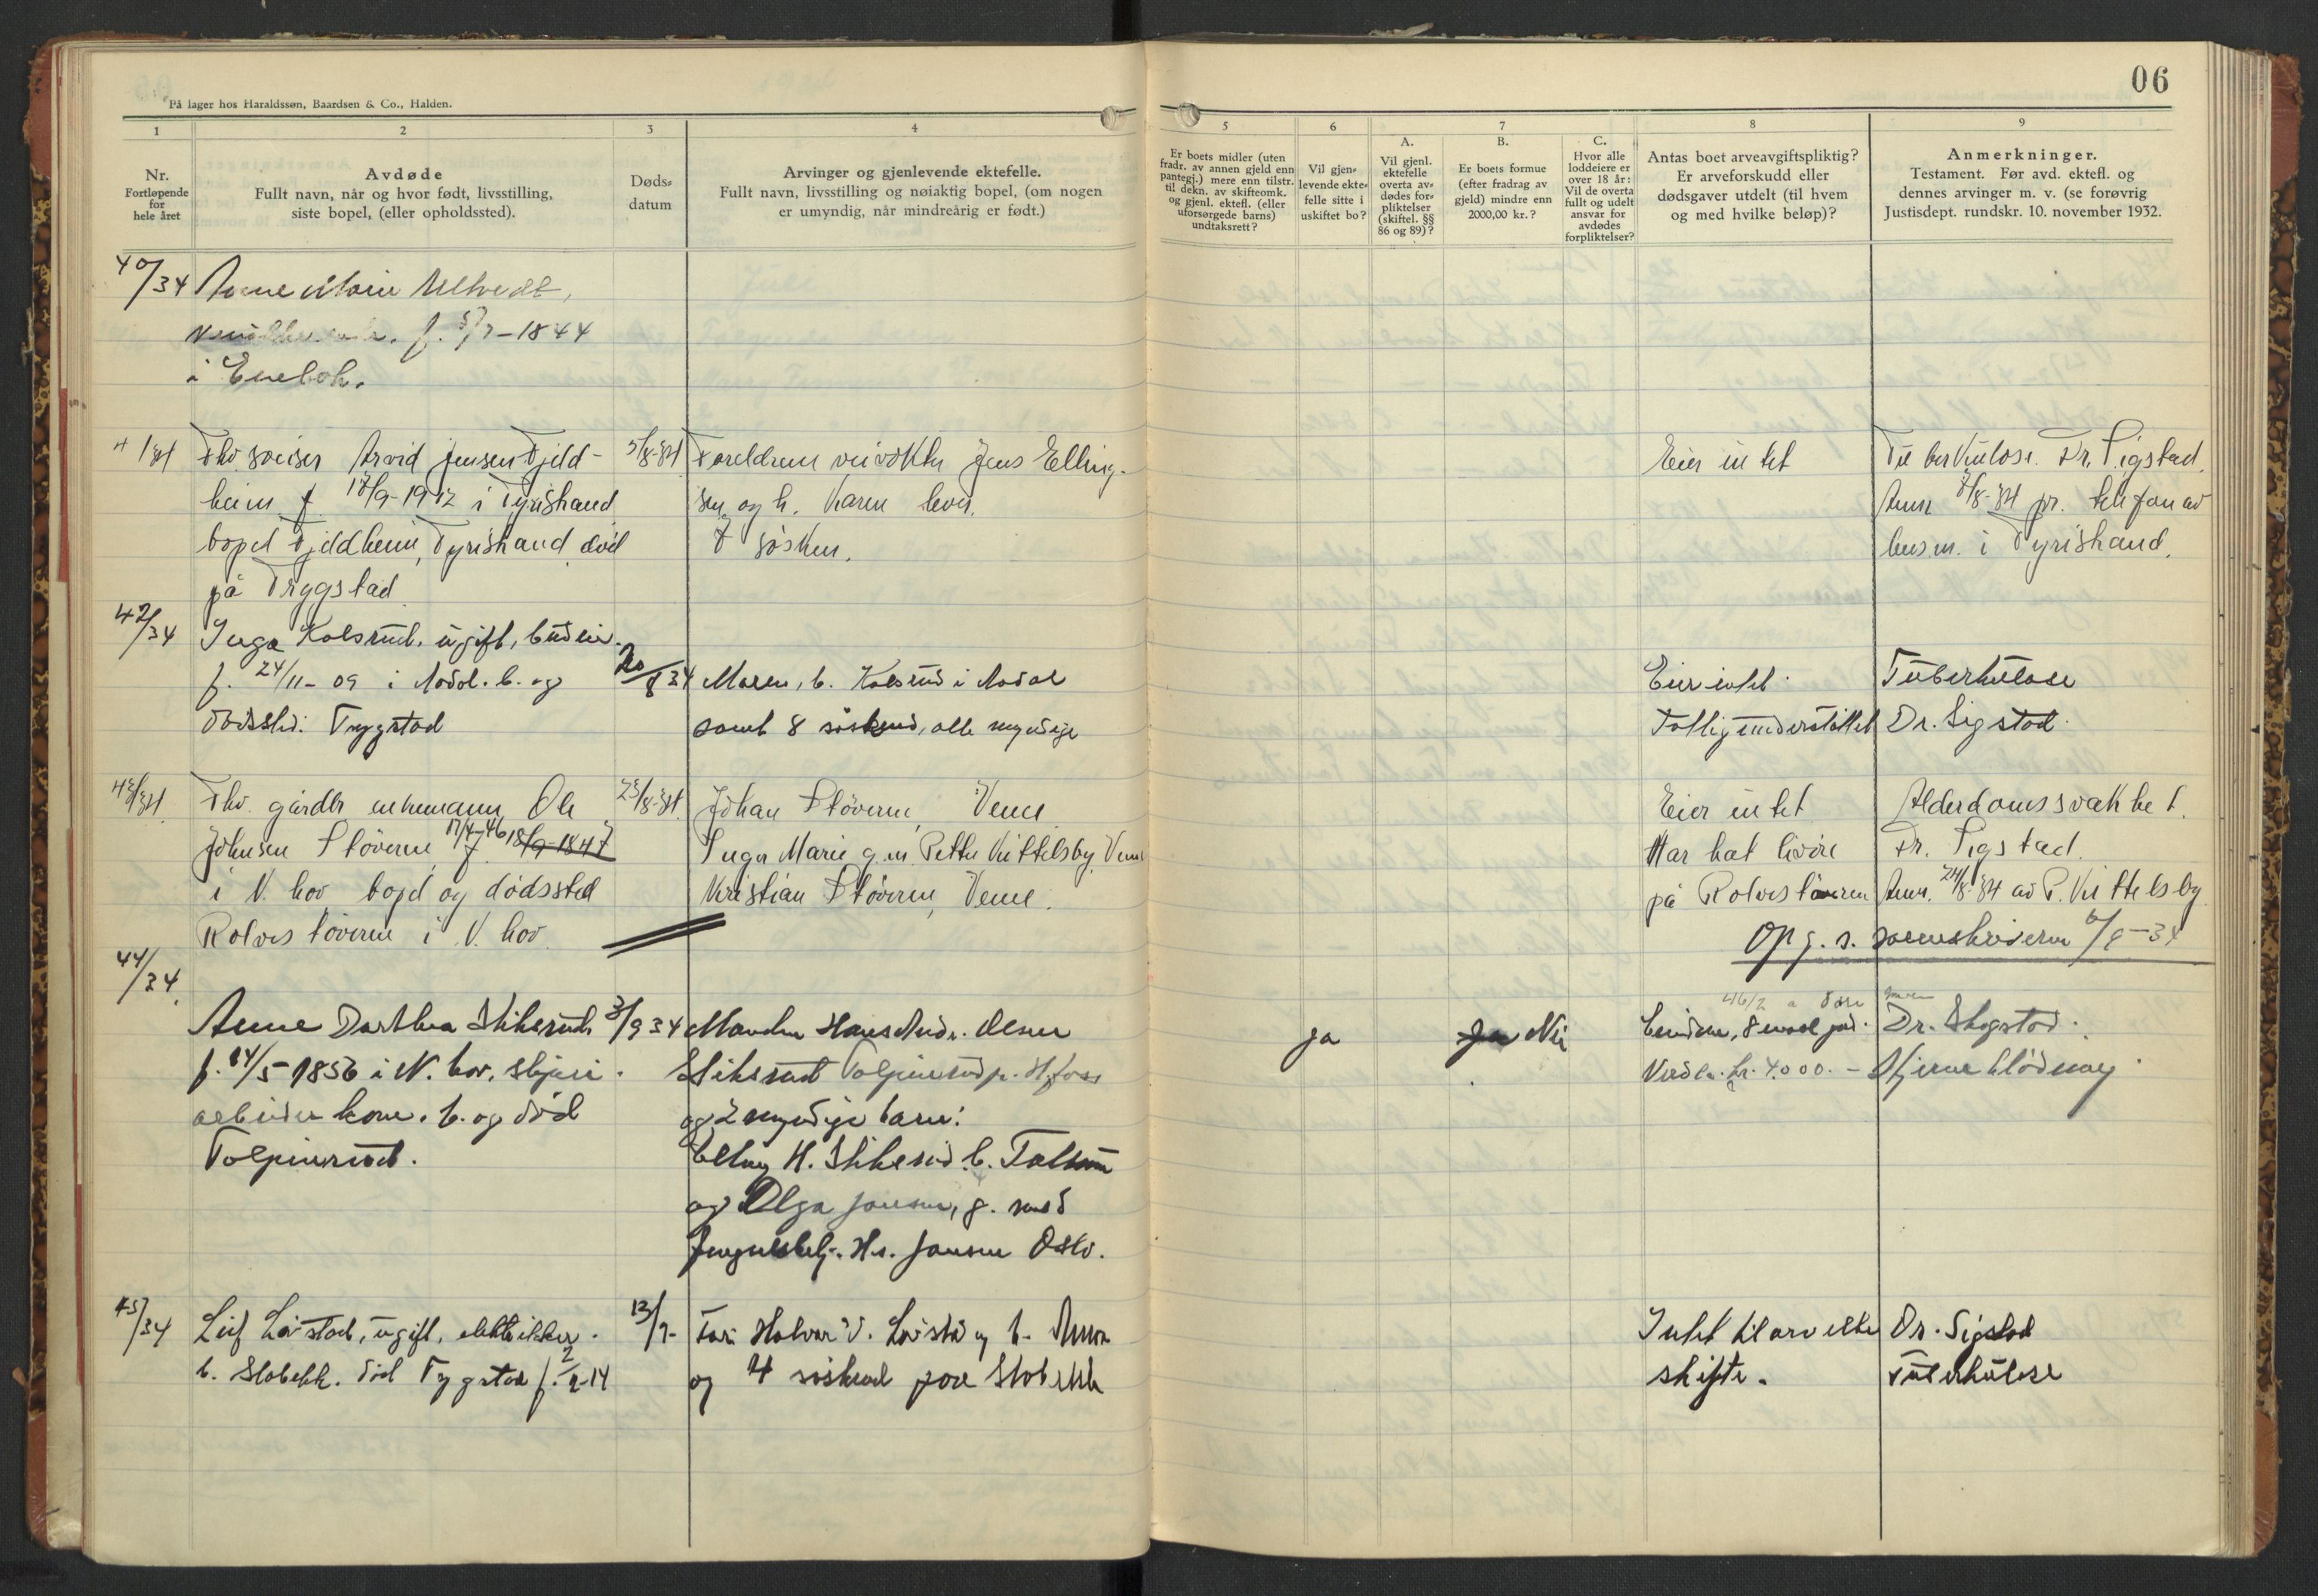 06
På lager hos Haraldssøn, Baardsen & Co., Halden.
1
Nr.
Fortløpende
for
hele året
2
Avdøde
Fullt navn, når og hvor født, livsstilling,
siste bopel, (eller opholdssted).
3
Døds-
datum
4
Arvinger og gjenlevende ektefelle.
Fullt navn, livsstilling og nøiaktig bopel, (om nogen
er umyndig, når mindreårig er født.)
5
Er boets midler (uten
fradr. av annen gjeld enn
pantegj.) mere enn tilstr.
til dekn. av skifteomk.
og gjenl. ektefl. (eller
uforsørgede barns)
undtaksrett?
6
Vil gjen-
levende ekte-
felle sitte i
uskiftet bo?
7
A.
Vil gjenl.
ektefelle
overta av-
dødes for-
pliktelser
(skiftel. §§
86 og 89)?
B.
Er boets formue
(efter fradrag av
gjeld) mindre enn
2000,00 kr.?
C.
Hvor alle
loddeiere er
over 18 år:
Vil de overta
fullt og udelt
ansvar for
avdødes
forpliktelser?
8
Antas boet arveavgiftspliktig?
Er arveforskudd eller
dødsgaver utdelt (til hvem
og med hvilke beløp)?
9
Anmerkninger.
Testament. Før avd. ektefl. og
dennes arvinger m. v. (se forøvrig
Justisdept. rundskr. 10. november 1932.
40/34 Anne Marie
f. 5/7-1844
i Enebak.
41/34 Fhv sveiser Arvid Jensen Fjeld-
heim f 18/9-1912 i Tyristrand
bopel Fjeldheim, Tyristrand død
på Tryggstad
5/8-34
Foreldrene veivokter Jens Elling-
sen og h. Karen lever.
7 søsken.
Eier intet
Tuberkulose. Dr. Sigstad.
Anm 7/8-34 pr. telefon av
lensm. i Tyristrand.
42/34 Inga Kolsrud, ugift, budeie.
f. 24/11-09 i Ådal. b. og
dødssted: Tryggstad
20/8 34
Maren, b. Kolsrud i Ådal
samt 8 søskend, alle myndige
Eier intet
Fattigunderstøttet
Tuberkulose
Dr. Sigstad.
43/34 Fhv. gårdbr enkemann Ole
Johnsen Støveren f. 17/4-46 18/9-1847
i N. hov bopel og dødssted
Rolvstøveren i N. hov.
23/8-34
Johan Støveren, Veme
Inger Marie g.m. Petter Kittelsby, Veme
Kristian Støveren, Veme.
Eier intet
Har hat livøre
på Rolvstøveren
Alderdomssvakhet.
Dr. Sigstad.
Anm. 24/8-34 av P. Kittelsby
Opg. s. sorenskriveren 6/9-34
44/34
Anne Dorthea Stiksrud
f. 24/5-1856 i N. hov, skjøn
arbeider kone. b. og død
Tolpinrud.
3/9 34
Manden Hans Andr. Olsen
Stiksrud Tolpinrud p. Hfoss
og 2 myndige barn:
Elling H. Stiksrud b. Follum
og Olga Jansen, g. med
H. Jansen Oslo.
ja
Ja Nei
Eiendom, 8 maal jord.
Verdi ca. kr. 4.000.-
Dr. Sigstad.
Hjerneblødning
45/34 Leif Løvstad, ugift, elektriker.
b. Slobekk. død Tryggstad f. 2/2-14
13/9-
Far: Halvor V. Løvstad og h. Anna
og 4 søskend paa Slobekk
Intet til arv eller
skifte.
Dr. Sigstad
Tuberkulose